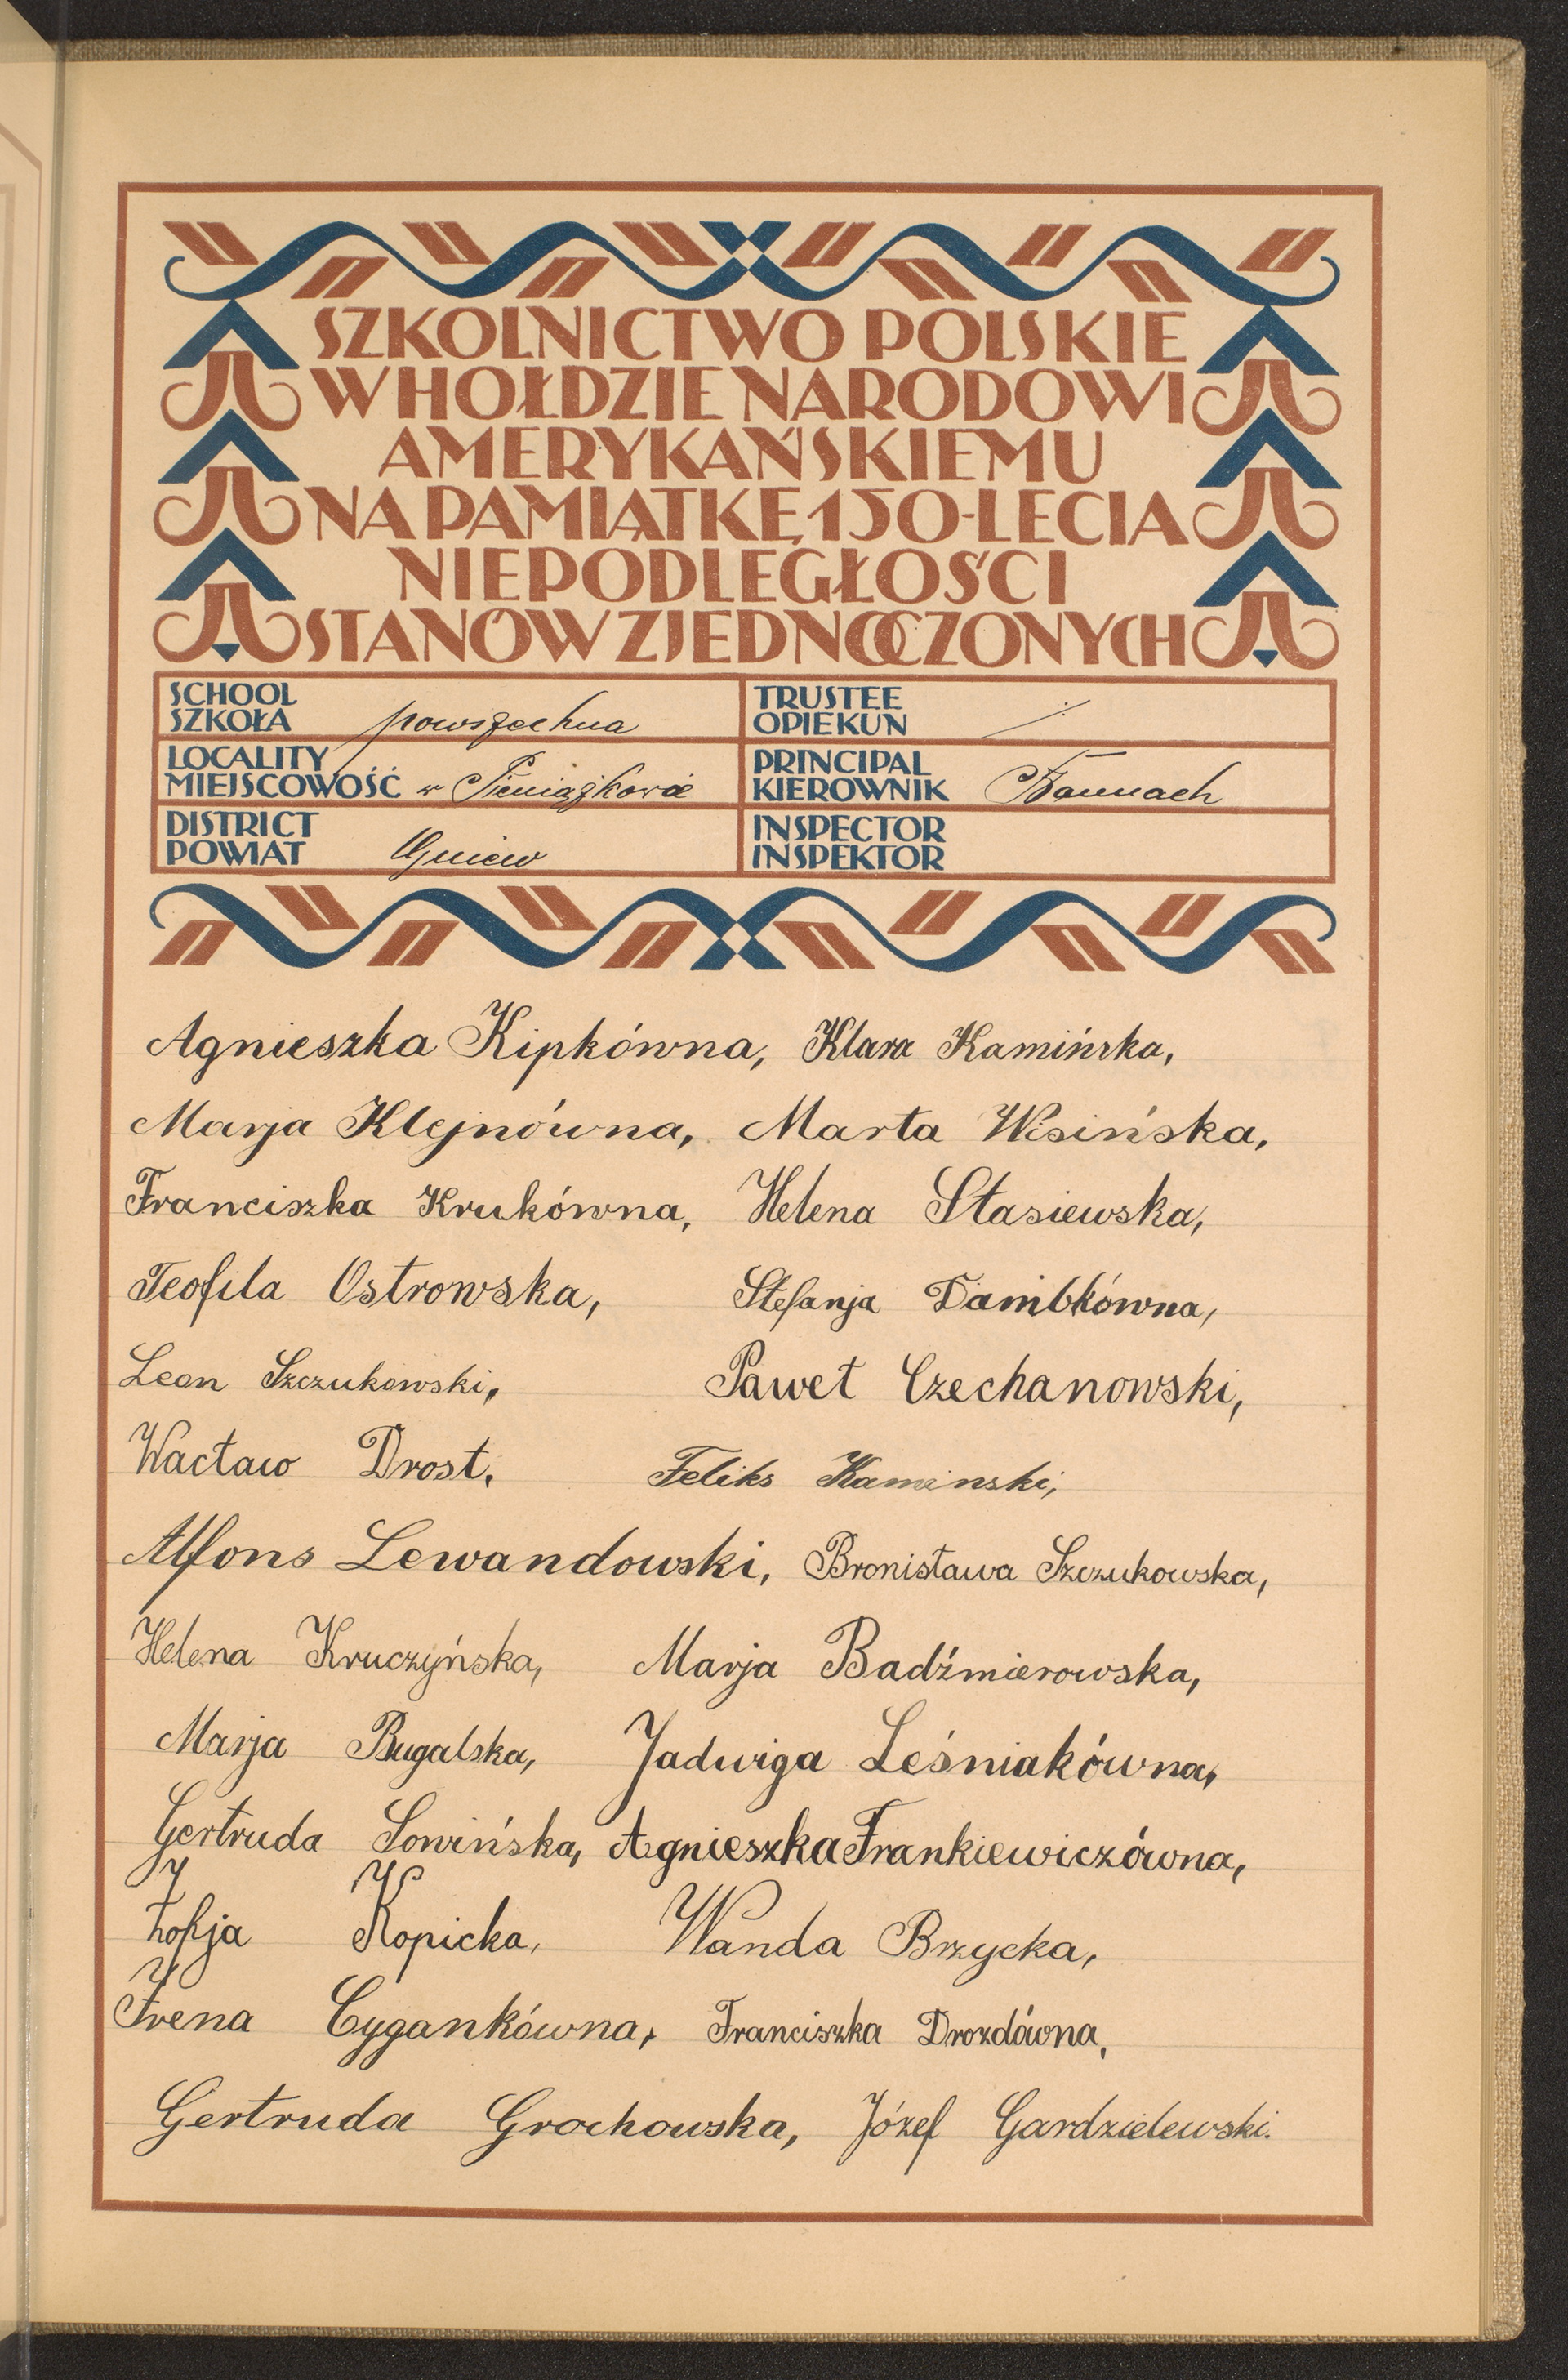 SZKOLNICTWO POLSKIE
W HOŁDZIE NARODOWI
AMERYKAŃSKIEMU
NA PAMIĄTKĘ 150-LECIA
NIEPODLEGŁOŚCI
STANÓW ZJEDNOCZONYCH
SCHOOL
SZKOŁA powszechna
TRUSTEE
OPIEKUN
LOCALITY
MIEJSCOWOŚĆ w Pieniążkowie
PRINCIPAL
KIEROWNIK Bannach
DISTRICT
POWIAT Gniew
INSPECTOR
INSPEKTOR
Agnieszka Kipkówna, Klara Kamińska,
Marja Klejnówna, Marta Wisińska,
Franciszka Krukówna, Helena Stasiewska,
Teofila Ostrowska, Stefanja Dambkówna,
Leon Szczukowski, Paweł Czechanowski,
Wacław Drost, Feliks Kaminski,
Alfons Lewandowski, Bronisława Szczukowska,
Helena Kruczyńska, Marja Badźmierowska,
Marja Bugalska, Jadwiga Leśniakówna,
Gertruda Sowińska, Agnieszka Frankiewiczówna,
Zofja Kopicka, Wanda Brzycka,
Irena Cygankówna, Franciszka Drozdówna,
Gertruda Grochowska, Józef Gardzielewski.